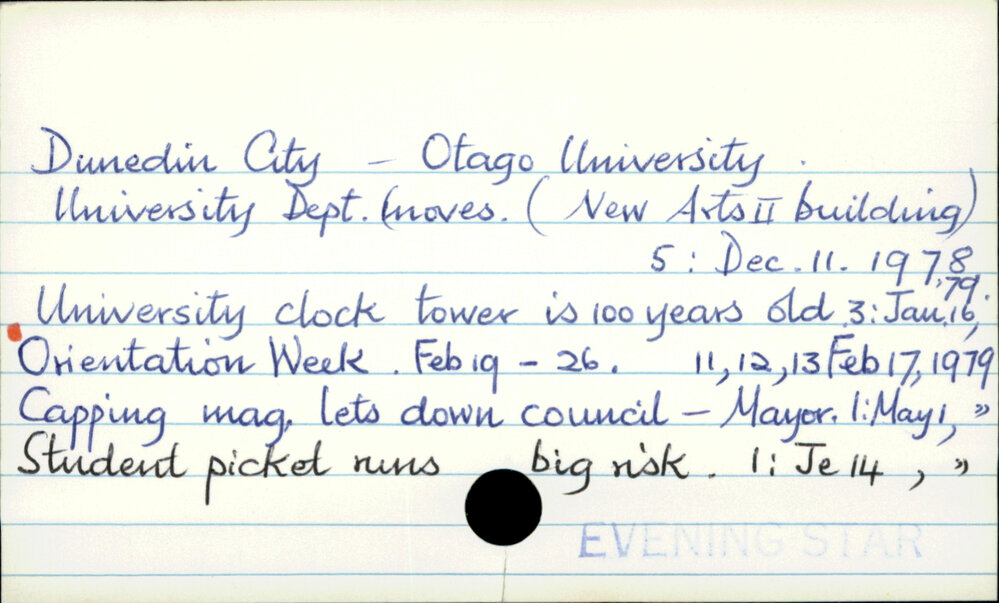 Dunedin City – Otago University.
University Dept. moves. (New Arts II building)
5: Dec. 11. 1978
University clock tower is 100 years old. 3: Jan. 16, '79.
Orientation Week. Feb 19 – 26. 11, 12, 13 Feb 17, 1979
Capping mag. lets down council – Mayor. 1: May 1, "
Student picket runs big risk. 1: Je 14, "
EVENING STAR